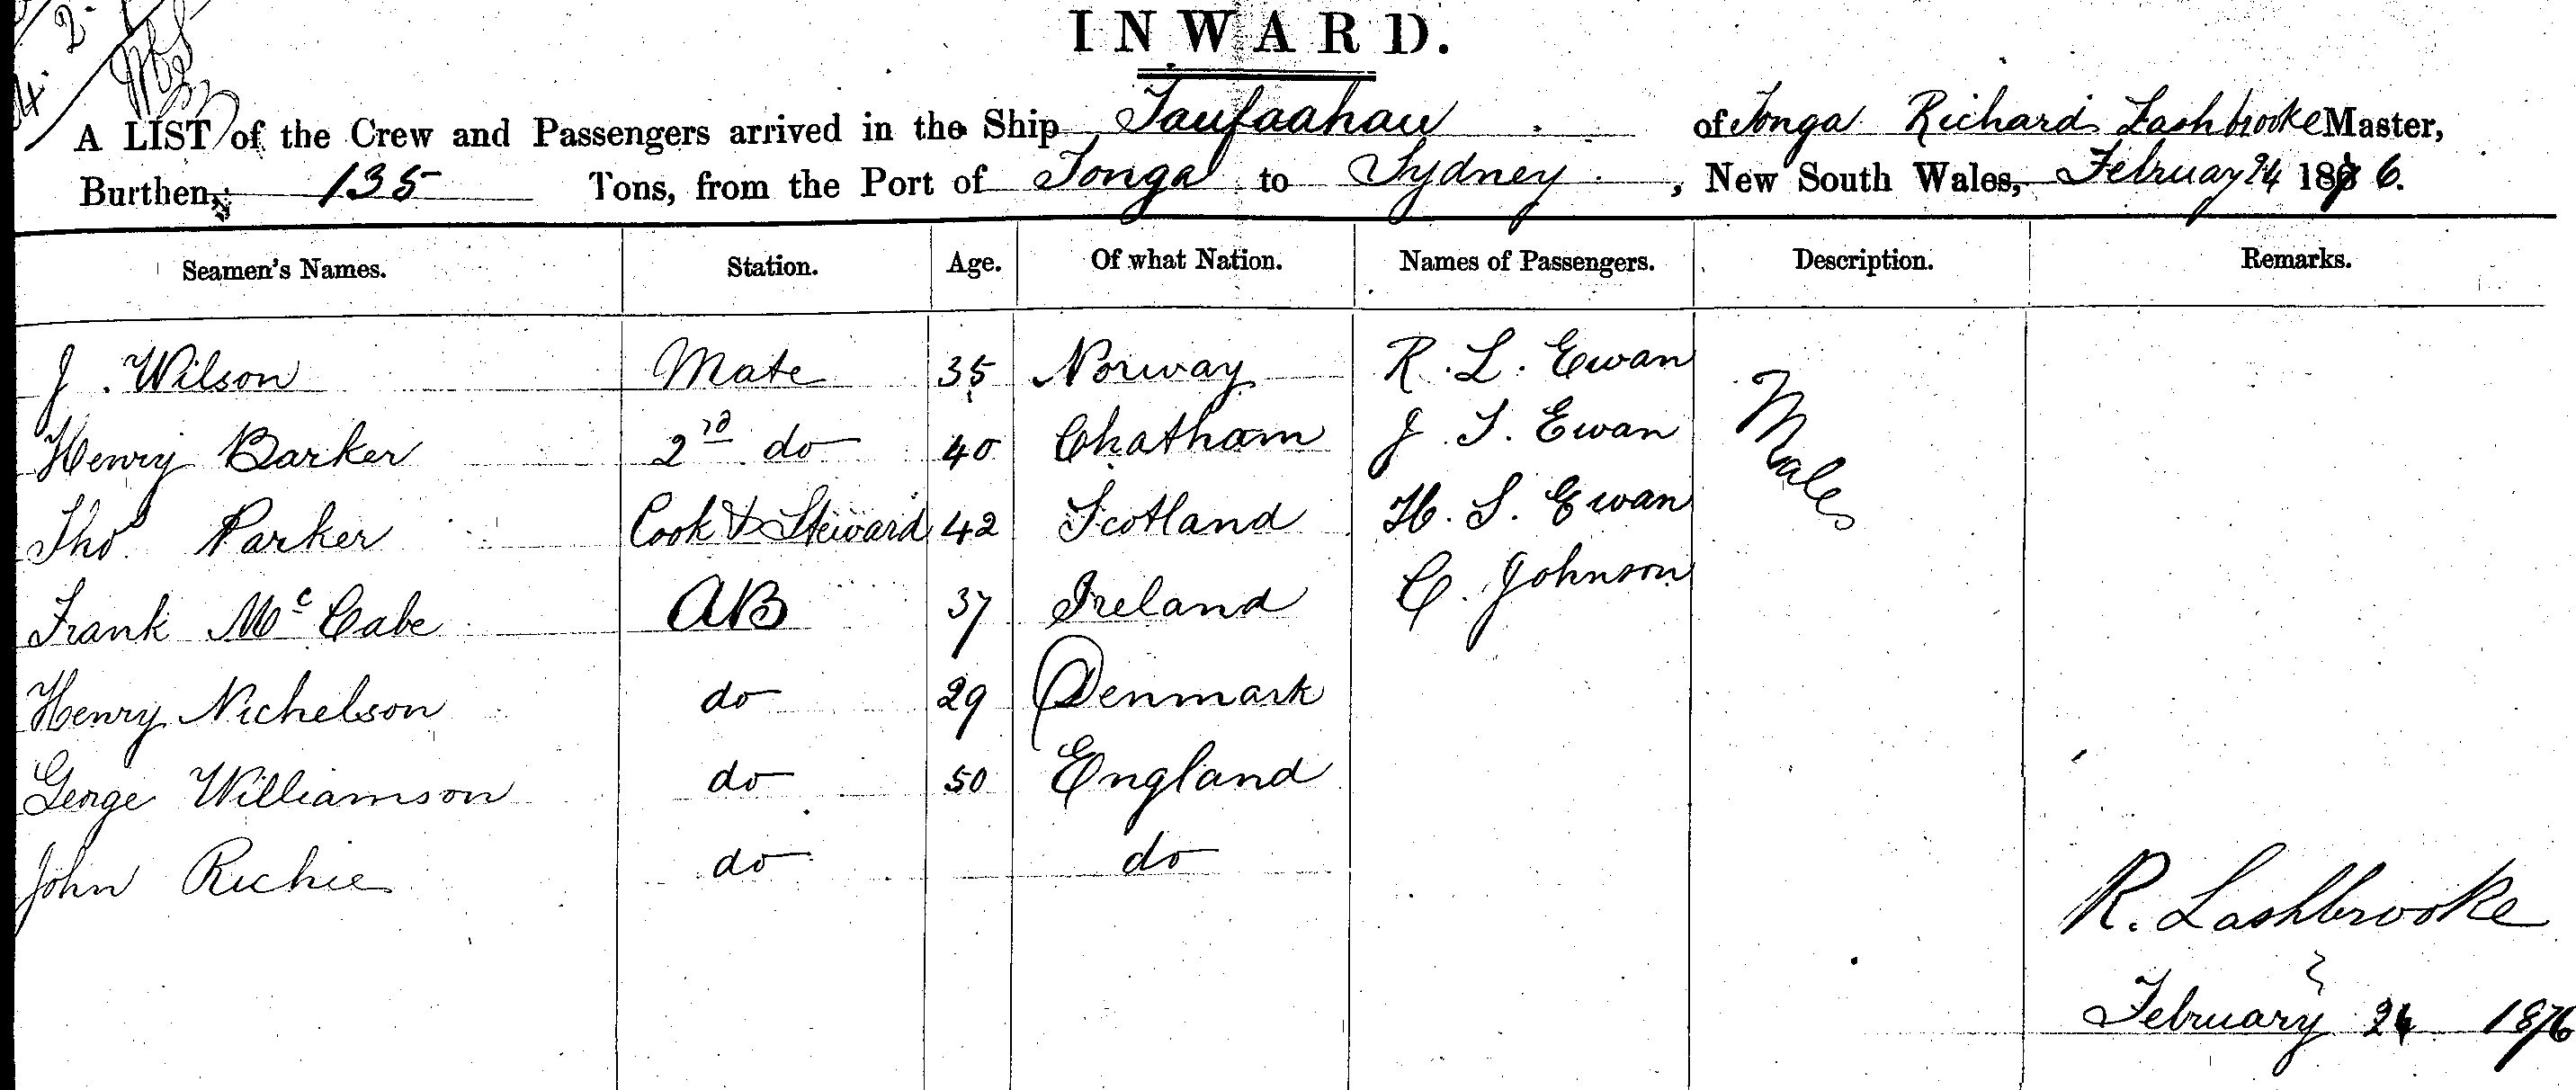 INWARD.
A LIST of the Crew and Passengers arrived in the Ship Taufaahau of Tonga Richard Lashbrooke Master,
Burthen, 135 Tons, from the Port of Tonga to Sydney, New South Wales, February 24 1876.
Seamen's Names. Station. Age. Of what Nation. Names of Passengers. Description. Remarks.
J. Wilson Mate 35 Norway R. L. Ewan Males
Henry Barker 2nd do 40 Chatham J. S. Ewan
Thos Parker Cook & Steward 42 Scotland H. S. Ewan
Frank McCabe AB 37 Ireland C. Johnson
Henry Nichelson do 29 Denmark
George Williamson do 50 England
John Richie do do
R. Lashbrooke
February 24 1876